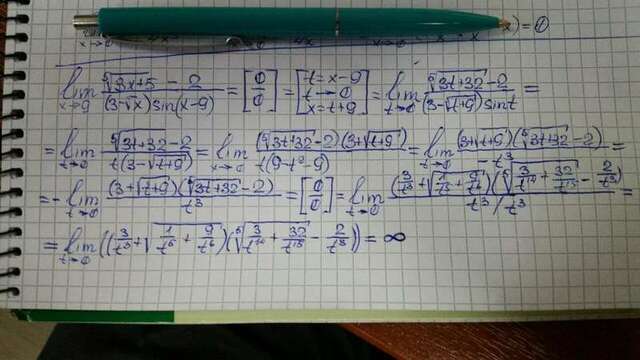 x) = 0
lim x→9 (⁵√(3x+5) - 2)/((3-√x)sin(x-9)) = [0/0] = [t = x-9, t→0, x = t+9] = lim t→0 (⁵√(3t+32) - 2)/((3-√(t+9))sin t) =
= lim t→0 (⁵√(3t+32) - 2)/(t(3-√(t+9))) = lim x→0 ((⁵√(3t+32) - 2)(3+√(t+9)))/(t(9-t²-9)) = lim t→0 ((3+√(t+9))(⁵√(3t+32) - 2))/(-t³) =
= - lim t→0 ((3+√(t+9))(⁵√(3t+32) - 2))/t³ = [0/0] = lim t→0 ((3/t³ + √(1/t⁵ + 9/t⁶))(⁵√(3/t¹⁴ + 32/t¹⁵) - 2/t³))/(t³/t³) =
= lim t→0 ((3/t³ + √(1/t⁵ + 9/t⁶))(⁵√(3/t¹⁴ + 32/t¹⁵) - 2/t³)) = ∞